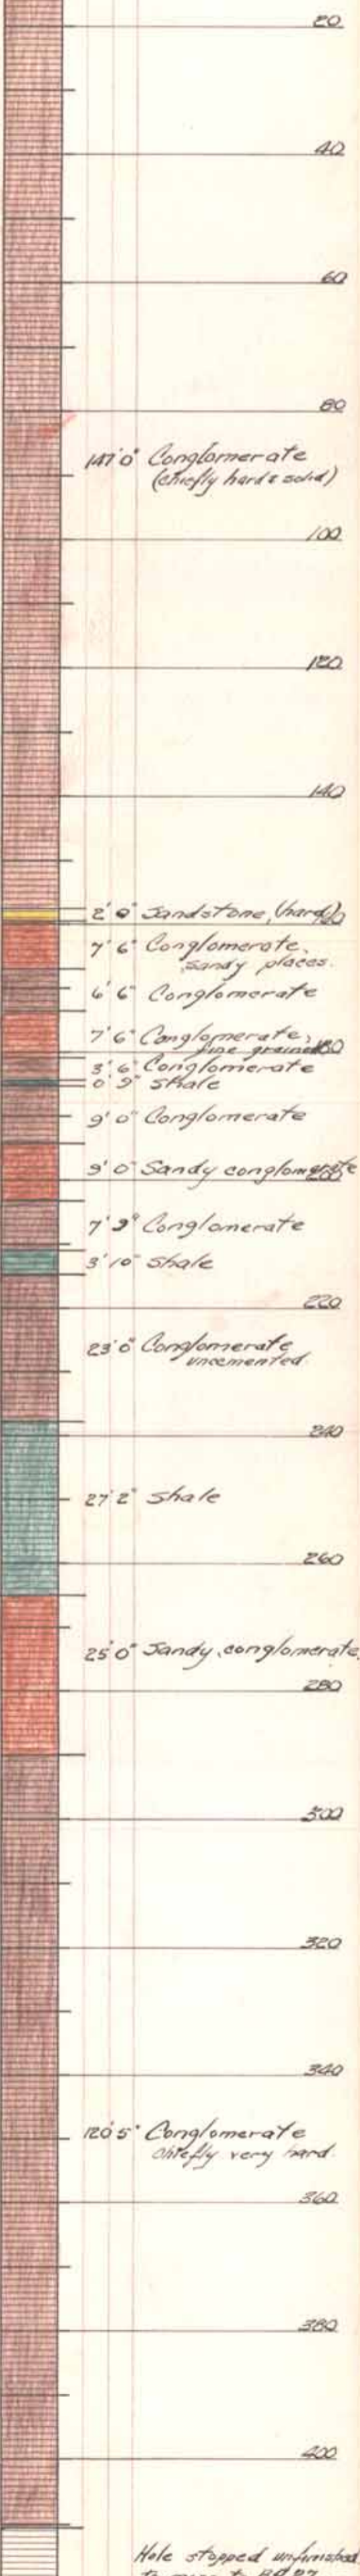 20
40
60
80
147'0" Conglomerate
(chiefly hard & solid)
100
120
140
2'0" Sandstone, (hard) 160
7'6" Conglomerate,
sandy places.
6'6" Conglomerate
7'6" Conglomerate,
fine grained 180
3'6" Conglomerate
0'9" Shale
9'0" Conglomerate
9'0" Sandy conglomerate
200
7'9" Conglomerate
3'10" Shale
220
23'0" Conglomerate
uncemented.
240
27'2" Shale
260
25'0" Sandy conglomerate.
280
300
320
340
120'5" Conglomerate
chiefly very hard.
360
380
400
Hole stopped unfinished
to move to